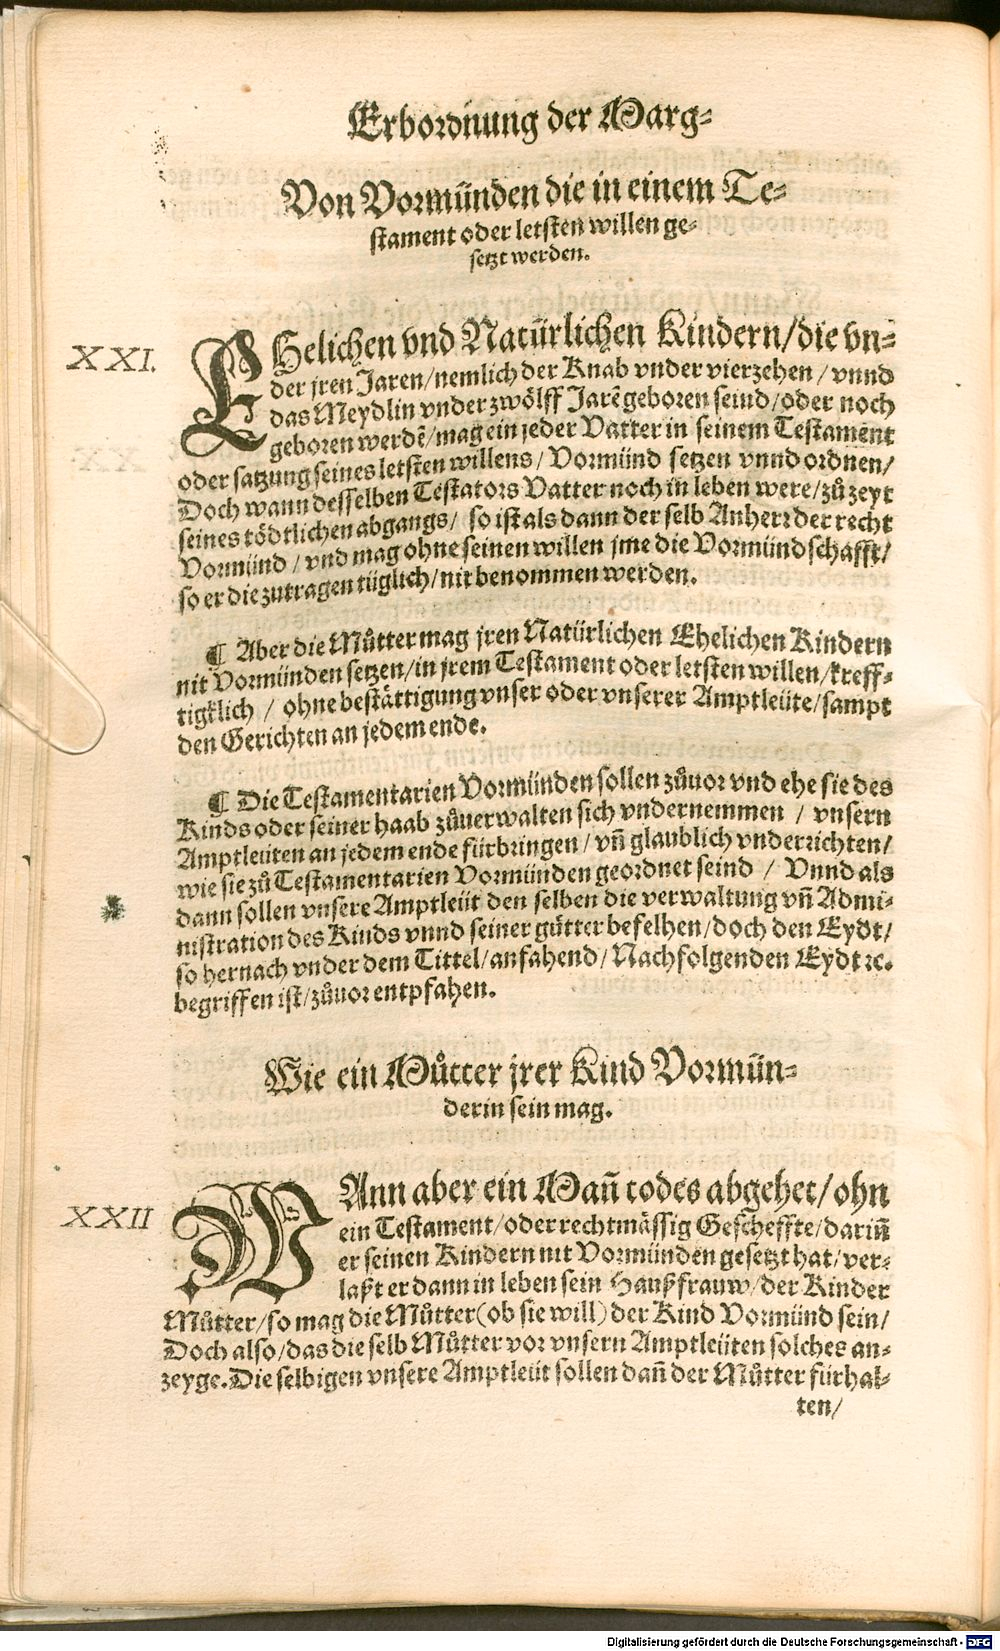 Erbordnung der Marg⸗
Von Vormünden die in einem Te⸗
stament oder letsten willen ge⸗
setzt werden.
XXI.
EHelichen vnd Natürlichen Kindern/die vn⸗
der jren Jaren/nemlich der Knab vnder vierzehen / vnnd
das Meydlin vnder zwölff Jarẽ geboren seind/oder noch
geboren werdẽ/mag ein jeder Vatter in seinem Testament
oder satzung seines letsten willens/ Vormünd setzen vnnd ordnen/
Doch wann desselben Testators Vatter noch in leben were/zů zeyt
seines tödtlichen abgangs/ so ist als dann der selb Anherr der recht
Vormünd / vnd mag ohne seinen willen jme die Vormündschafft/
so er die zutragen tüglich/nit benommen werden.
¶ Aber die Můtter mag jren Natürlichen Ehelichen Kindern
nit Vormünden setzen/in jrem Testament oder letsten willen/kreff⸗
tigklich / ohne bestättigung vnser oder vnserer Amptleüte/sampt
den Gerichten an jedem ende.
¶ Die Testamentarien Vormünden sollen zůuor vnd ehe sie des
Kinds oder seiner haab zůuerwalten sich vndernemmen / vnsern
Amptleüten an jedem ende fürbringen/ vñ glaublich vnderrichten/
wie sie zů Testamentarien Vormünden geordnet seind / Vnnd als
dann sollen vnsere Amptleüt den selben die verwaltung vñ Admi⸗
nistration des Kinds vnnd seiner gütter befelhen/doch den Eydt/
so hernach vnder dem Tittel/anfahend/Nachfolgenden Eydt ꝛc.
begriffen ist/zůuor entpfahen.
Wie ein Můtter jrer Kind Vormün⸗
derin sein mag.
XXII
WAnn aber ein Mañ todes abgehet/ohn
ein Testament/oder rechtmässig Gescheffte/dariñ
er seinen Kindern nit Vormünden gesetzt hat/ver⸗
laßt er dann in leben sein Haußfrauw/der Kinder
Můtter/so mag die Můtter(ob sie will) der Kind Vormünd sein/
Doch also/das die selb Můtter vor vnsern Amptleüten solches an⸗
zeyge. Die selbigen vnsere Amptleüt sollen dañ der Můtter fürhal⸗
ten/
Digitalisierung gefördert durch die Deutsche Forschungsgemeinschaft - DFG